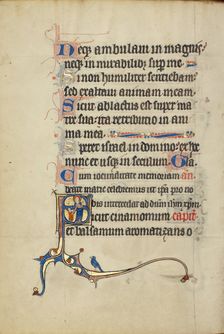 Neq; ambulaui in magnis
neq; in mirabilib; sup me
Si non humiliter sentiebam
sed exaltaui animam meam
Sicut ablactatus est super matre
sua ita retributio in ani
ma mea
Speret israel in domino ex hoc
nunc et usq; in seculum Gla
Cum iocunditate memoriam
marie celebremus ut ipa pro no
bis intercedat ad dnm
Sicut cinamomum capit
et balsamum aromatizans o